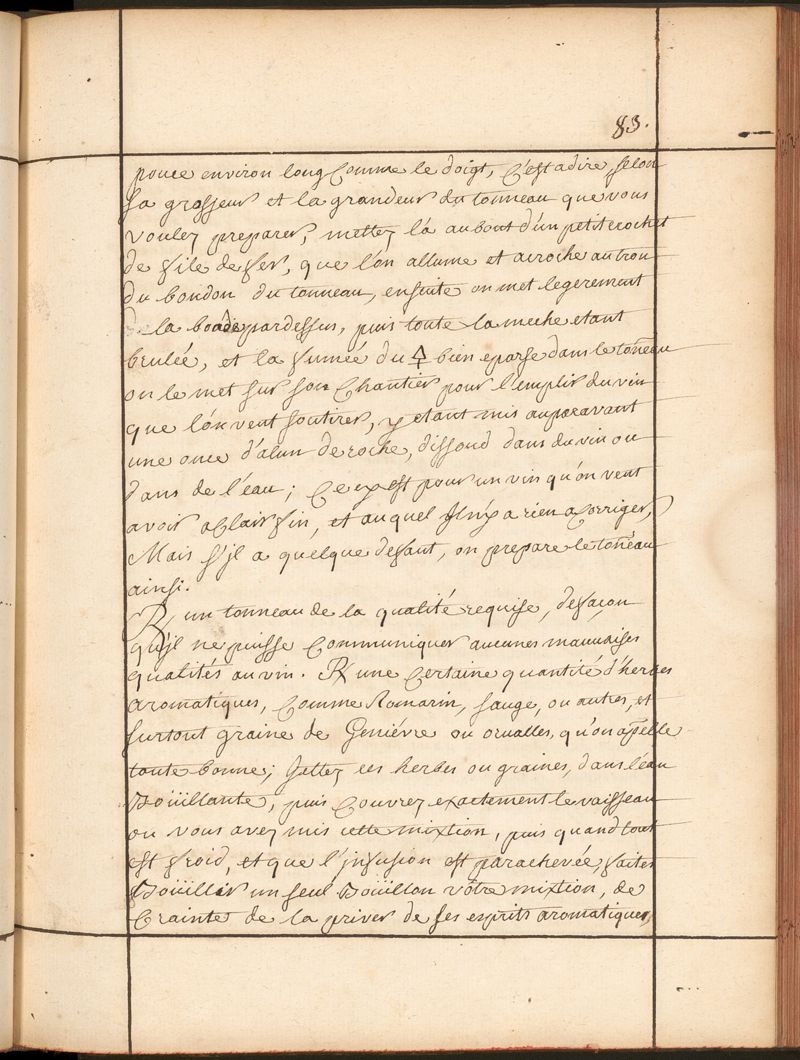 83.
pouce environ long Comme le doigt, C'est adire, selon
sa grosseur et la grandeur du tonneau que vous
voulez preparer, mettez lá au bout d'un petit crochet
de file de fer, que l'on allume et acroche au trou
du boudon du tonneau, ensuite on met legerement
la bonde pardessus, puis toute la meche etant
brulée, et la fumée du 🜍 bien eparse dans le toñeau
on le met sur son Chantier pour l'emplir du vin
que l'on veut soutirer, y etant mis auparavant
une once d'alun de roche, dissoud dans du vin ou
dans de l'eau; Cecy est pour un vin qu'on veut
avoir Clair fin, et auquel Jl n'y a rien a Corriger,
Mais s'jl a quelque defaut, on prepare le toñeau
ainsi.
℞, un tonneau de la qualité requise, defaçon
qu'jl ne puisse Communiquer aucunes mauvaises
qualités au vin. ℞ une Certaine quantité d'herbes
aromatiques, Comme Romarin, sauge, ou autres, et
surtout graine de Geniévre ou orvalles, qu'on apelle
toute bonne; Jettez ces herbes ou graines, dans l'éau
Boüillante, puis Couvrez exactement le vaisseau
ou vous avez mis cette mixtion, puis quand tout
est froid, et que l'jnfusion est parachevée, faites
Boüillir un seul Boüillon vôtre mixtion, de
Crainte de la priver de ses esprits aromatiques,